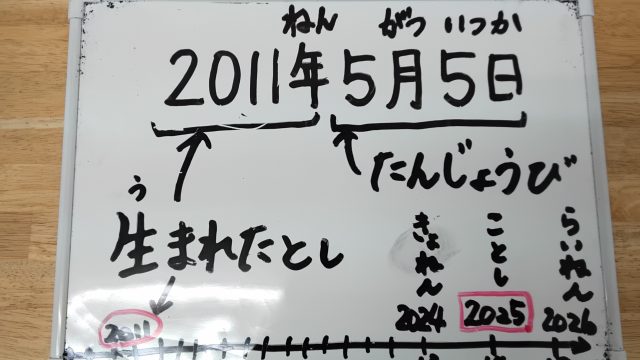 ねん がつ いつか
2011年5月5日
たんじょうび
う
生まれたとし
きょねん ことし らいねん
2011 2024 2025 2026